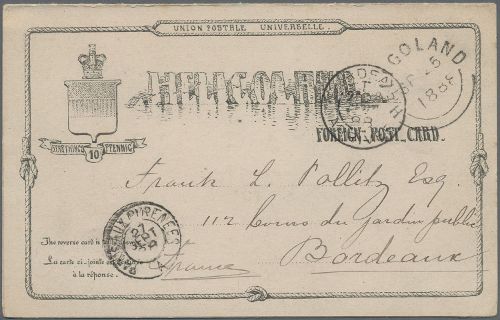 UNION POSTALE UNIVERSELLE
HELIGOLAND
GOLAND
SP 5
188
FOREIGN POST CARD.
FARTHINGS 10 PFENNIG
Frank L. Pollitz Esq.
112 Cours du Jardin public
Bordeaux
France
PYRENEES
The reverse card is
La carte ci-jointe est
à la réponse.